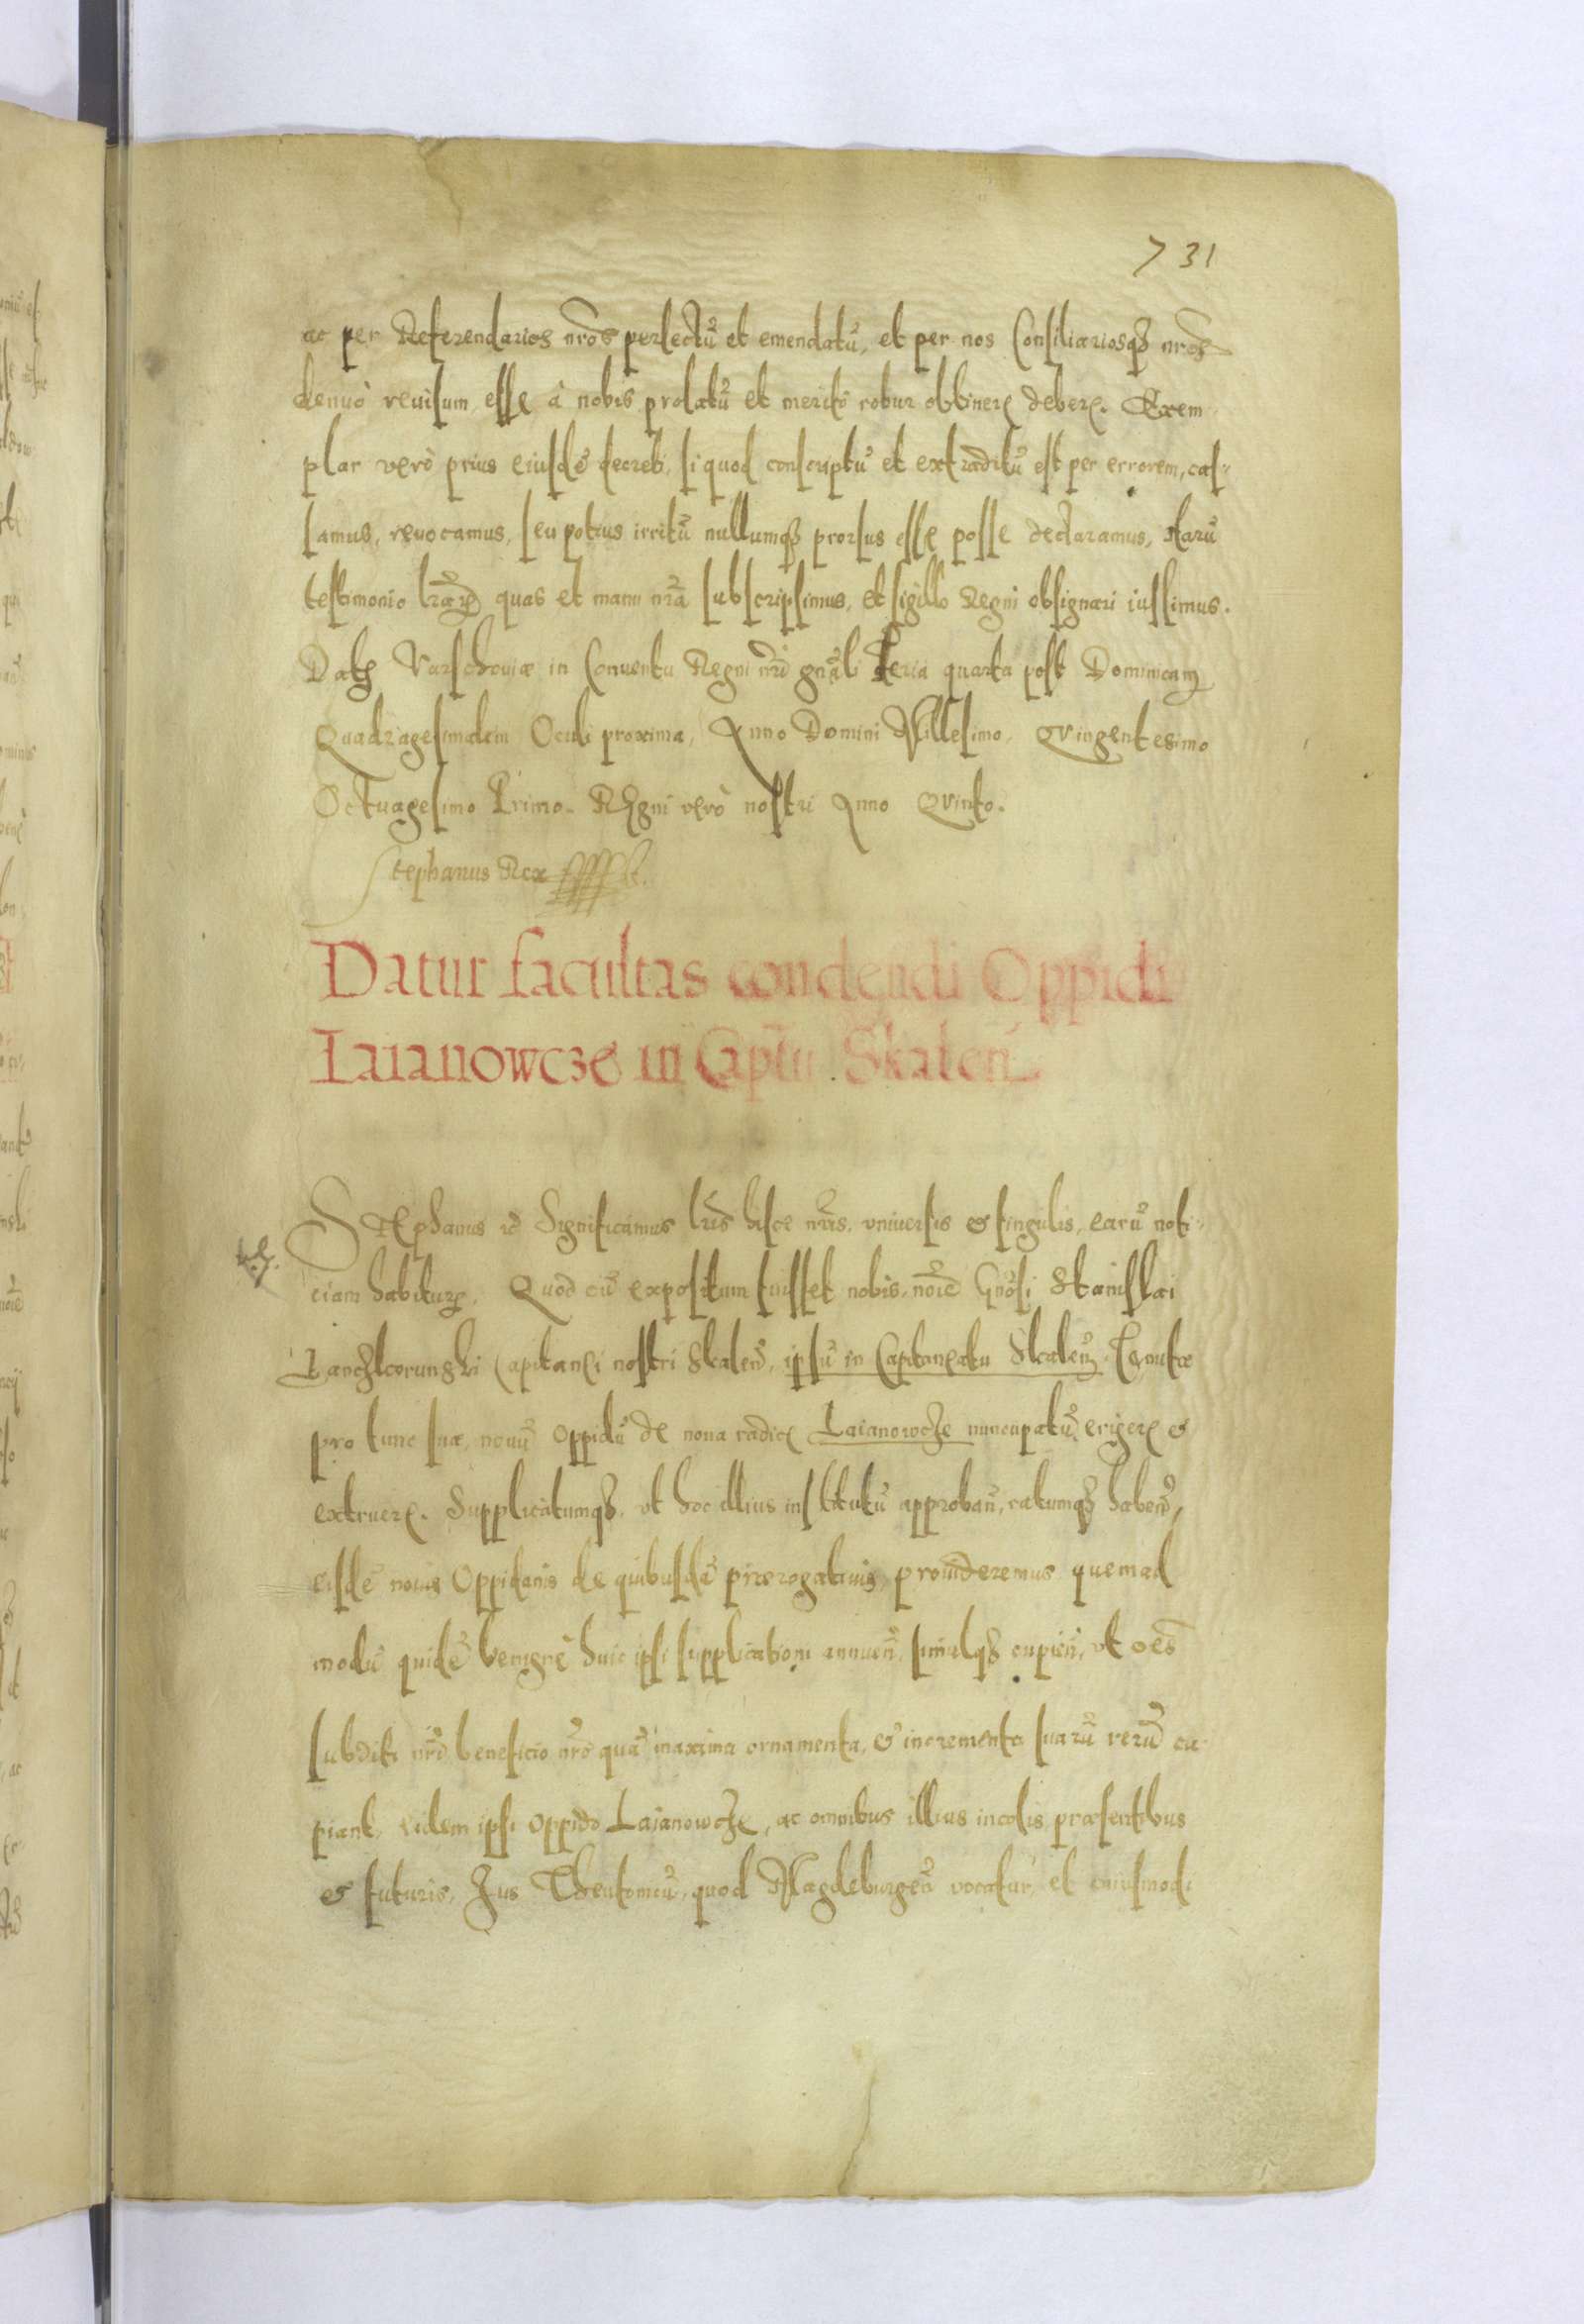 731
ac per Referendarios nr̃os perlectũ et emendatũ, et per nos Consiliariosqȝ nr̃os
denuò reuisum, esse à nobis prolatũ et meritò robur obtinere debere. Exem
plar verò prius eiusdẽ decreti, si quod conscriptũ et extraditũ est per errorem, cas-
samus, reuocamus, seu potius irritũ nullumqȝ prorsus esse posse declaramus, Harũ
testimonio lrãrꝝ quas et manu nr̃a subscripsimus, et sigillo Regni obsignari iussimus.
Datȝ Varschouiæ in Conuentu Regni nr̃i gnãli feria quarta post Dominicam
Quadragesimalem Oculi proxima, Anno Domini Millesimo, Qvingentesimo
Octuagesimo Primo. Regni verò nostri Anno Qvinto.
Stephanus Rex
Datur facultas condendi Oppidi
Laianowcze in Captũ Skaleñ
STEphanus ꝛc Significamus lr̃is hisce nr̃is, vniuersis & singulis, earũ noti-
ciam habiturȝ. Quod cũ expositum fuisset nobis, noĩe Gnõsi Stanislai
Lanczkorunski Capitanei nostri Skaleñ, ipsũ in Capitaneatu Skaleñ Tenutæ
pro tunc suæ, nouũ Oppidũ de noua radice Laianowcze nuncupatũ, erigere &
extruere. Supplicatumqȝ, vt hoc illius institutũ approbañ, ratumqȝ habeñ,
eisdẽ nouis Oppidanis de quibusdã prærogatiuis prouideremus quemad
modũ quidẽ benignè huic ipsi supplicationi annueñ, simulqȝ cupieñ, vt oẽs
subditi nr̃i beneficio nr̃o quã maxima ornamenta, & incrementa suarũ rerũ ca
piant, eidem ipsi Oppido Laianowcze, ac omnibus illius incolis præsentibus
& futuris, Jus Theutonicũ, quod Magdeburgeñ vocatur, et eiusmodi